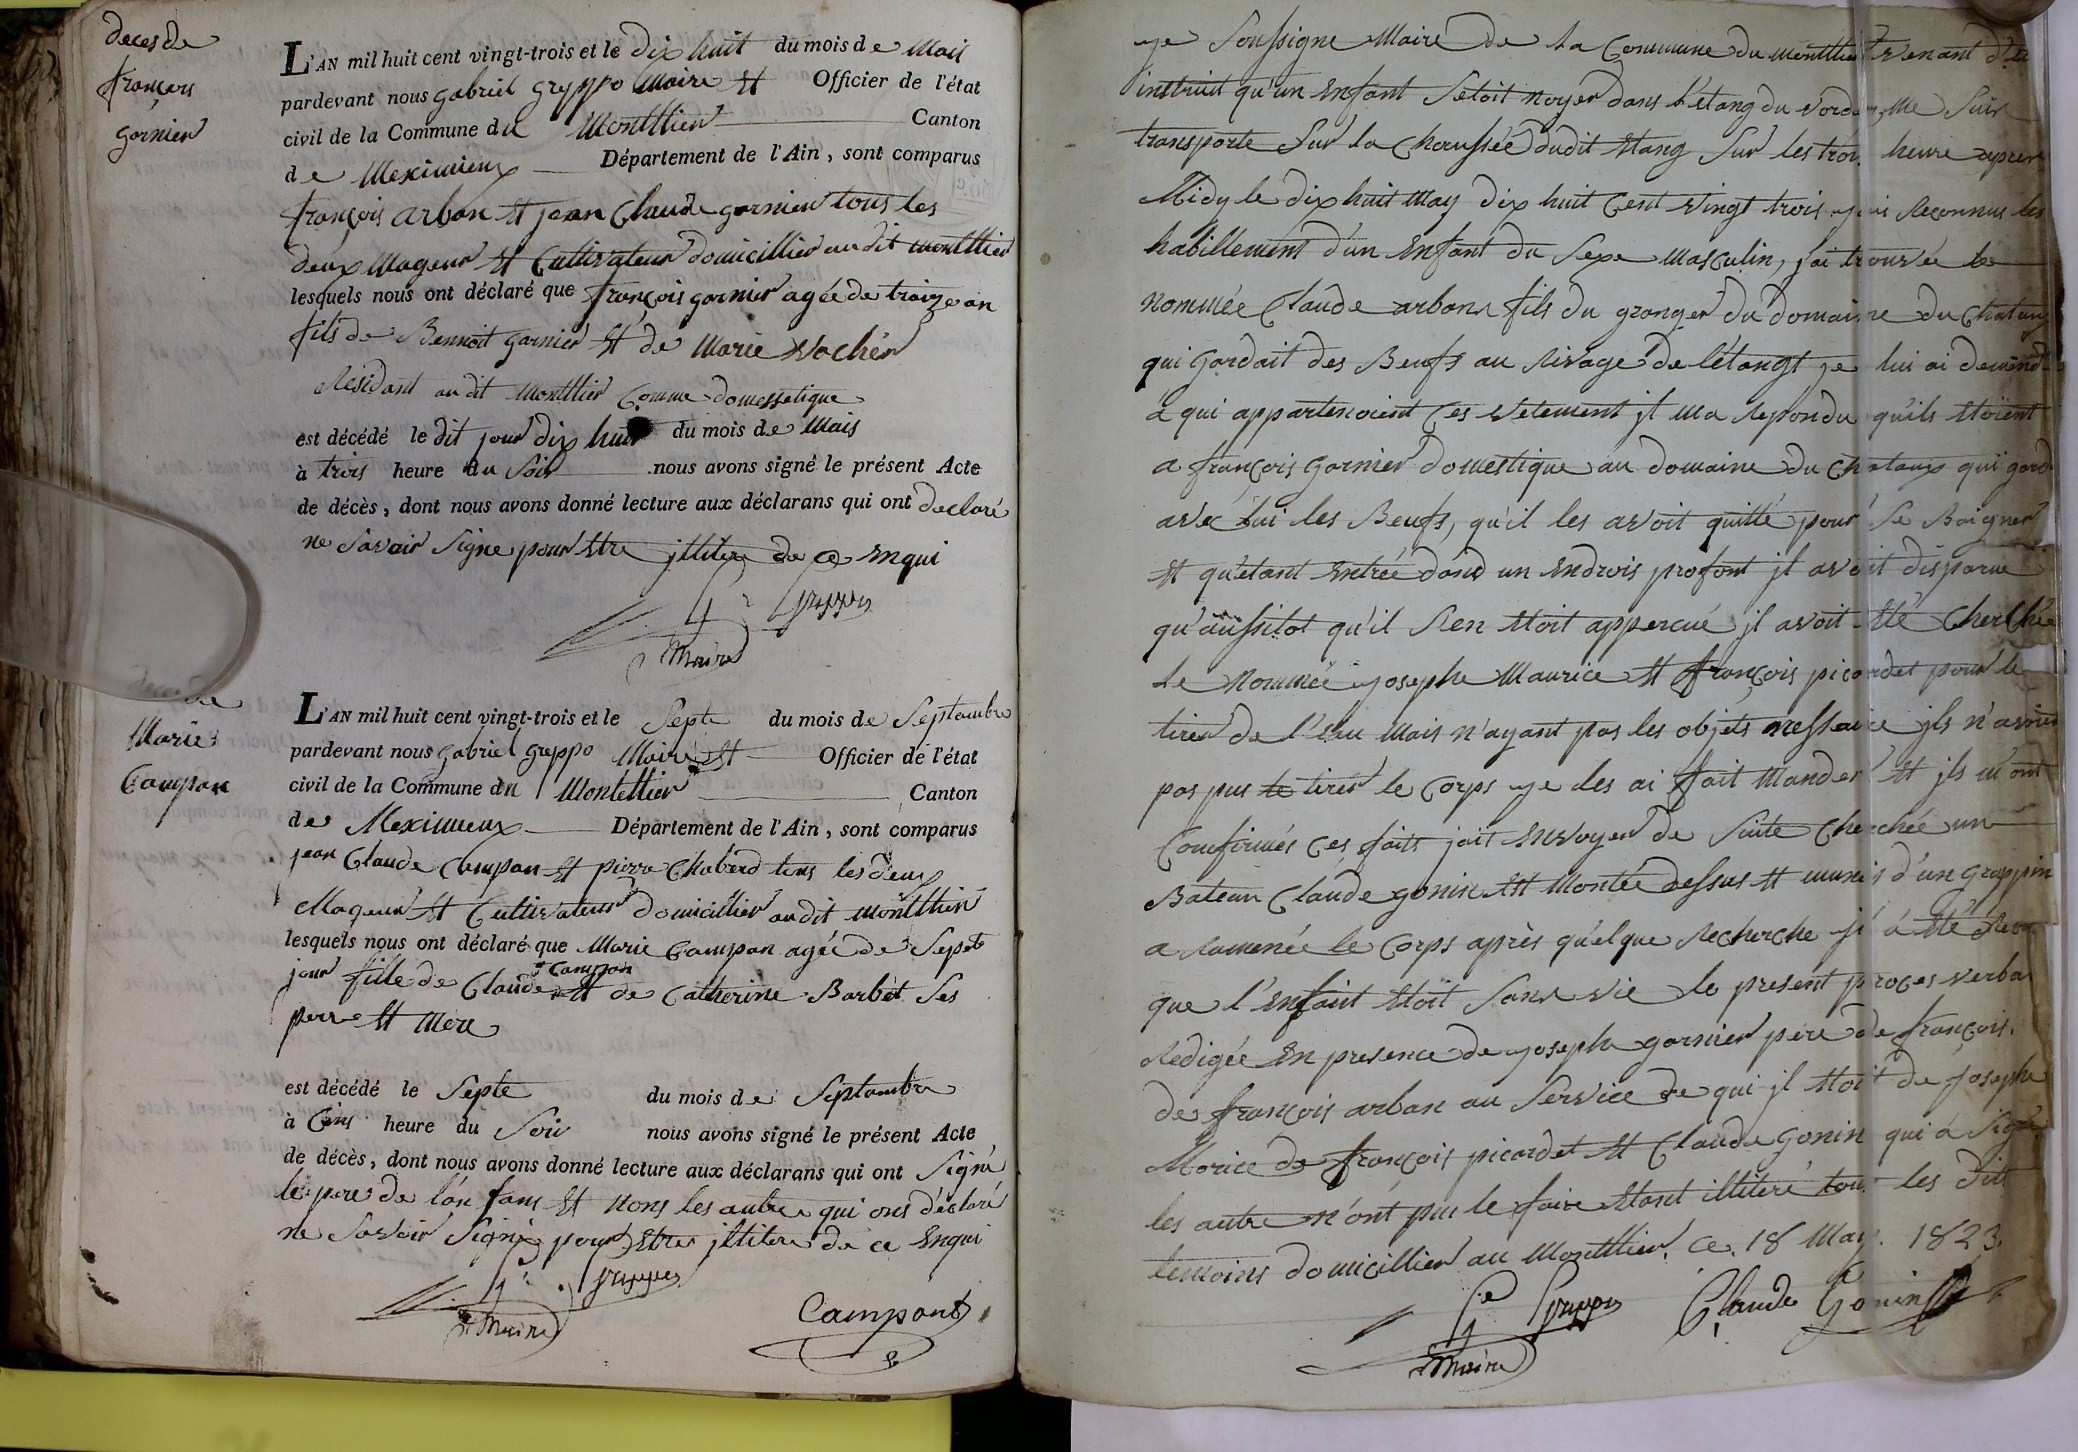 deces de
françois
garnier
L'AN mil huit cent vingt-trois et le dix huit du mois de Mais
pardevant nous gabriel greppo Maire Et Officier de l'état
civil de la Commune du Montllier Canton
de Meximieux Département de l'Ain, sont comparus
françois arban Et jean Claude garnier tous les
deux Mageur Et Cultivateur domicillier au dit Montllier
lesquels nous ont déclaré que françois garnier agée de traize an
fils de Bennoit garnier Et de Marie Vocher
Residant au dit Montllier Comme domessetique
est décédé le dit jour dix huit du mois de Mais
à trois heure du Soir nous avons signé le présent Acte
de décès, dont nous avons donné lecture aux déclarans qui ont declaré
ne Savoir Signe pour Etre jllitere de ce Enqui
greppo
Maire
de
Marie
Campan
L'AN mil huit cent vingt-trois et le Septe du mois de Septambre
pardevant nous gabriel greppo Maire Et Officier de l'état
civil de la Commune du Montellier Canton
de Meximieux Département de l'Ain, sont comparus
jean Claude Campan Et pierre Chaberd tous les deux
Mageur Et Cultivateur domicillier au dit Montllier
lesquels nous ont déclaré que Marie Campan agée de Sept
jour fille de Claude Campan Et de Catherine Barbet Ses
perre Et Mere
est décédé le Septe du mois de Septambre
à Cins heure du Soir nous avons signé le présent Acte
de décès, dont nous avons donné lecture aux déclarans qui ont Signé
le pere de l'an fans Et Nons les autre qui ons déclaré
ne Savoir Signé pour Etre jllitere de ce Enqui
greppo
Maire
Campant
je Soussigne Maire de la Commune du Montllier venant d'
instruit qu'un Enfant Setoit noyer dans l'etang du me Suis
transporte Sur la Chaussée dudit Etang Sur les trois heure apres
Midy le dix huit May dix huit Cent vingt trois j ai Reconnus les
habillement d'un Enfant du Sexe Masculin, j'ai trouvée le
nommée Claude arban fils du granger du domaine du Chataux
qui gardait des Beufs au Rivage de l'étangt je lui ai demend
a qui appartenoient Ces vetement jl ma Repondu qu'ils Etoient
a françois garnier domestique au domaine du Chataux qui gard
avec lui les Beufs, qu'il les avoit quitté pour Se Baigner
Et qu'etant Entrée dand un Endrois profont jl avoit disparue
qu'aussitot qu'il Sen Etoit appercué jl avoit Eté Cherché
le nommée joseph Maurice Et françois picardet pour le
tirer de l'Eau Mais n'ayant pas les objets nessaire jls n'avoient
pas pus le tirer le Corps je les ai fait Mander Et jls m'ont
Comfirmés Ces faits jait Envoyer de Suite Cherchée un
Bateau Claude gonin Est Montée dessus Et munis d'un grappin
a Ramenée le Corps après quelque Recherche jl a Eté
que l'Enfant Etoit Sans vie le present proces verbal
Redigée En presence de joseph garnier pere de françois
de françois arban au Service de qui jl Etoit de joseph
Morice de françois picardet Et Claude gonin qui a Signé
les autre n'ont pu le faire Etant illiteré tous les dits
temoins domicillier au Montllier. Ce. 18 May. 1823
greppo Claude Gonin
Maire